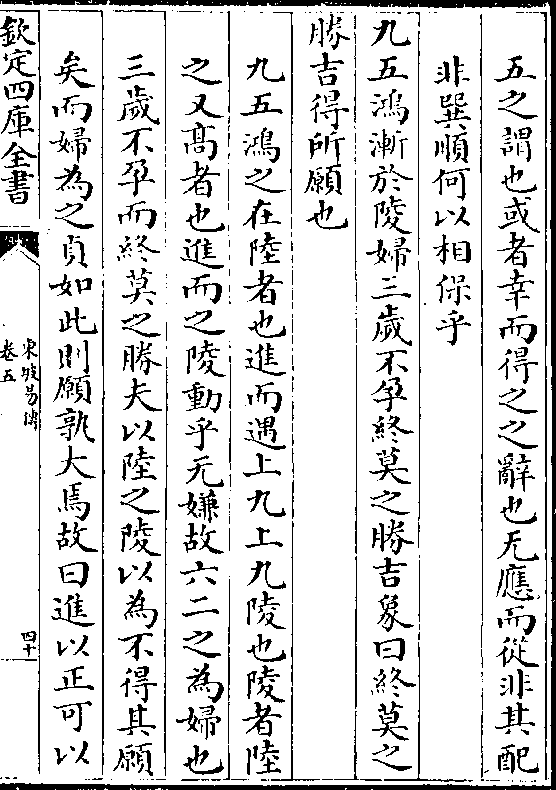 五之謂也或者幸而得之之辭也无應而從非其配
非巽順何以相保乎
九五鴻漸於陵婦三歲不孕終莫之勝吉象曰終莫之
勝吉得所願也
九五鴻之在陸者也進而遇上九上九陵也陵者陸
之又高者也進而之陵動乎无嫌故六二之為婦也
三歲不孕而終莫之勝夫以陸之陵以為不得其願
矣而婦為之貞如此則願孰大焉故曰進以正可以
欽定四庫全書
東坡易傳
卷五
四十